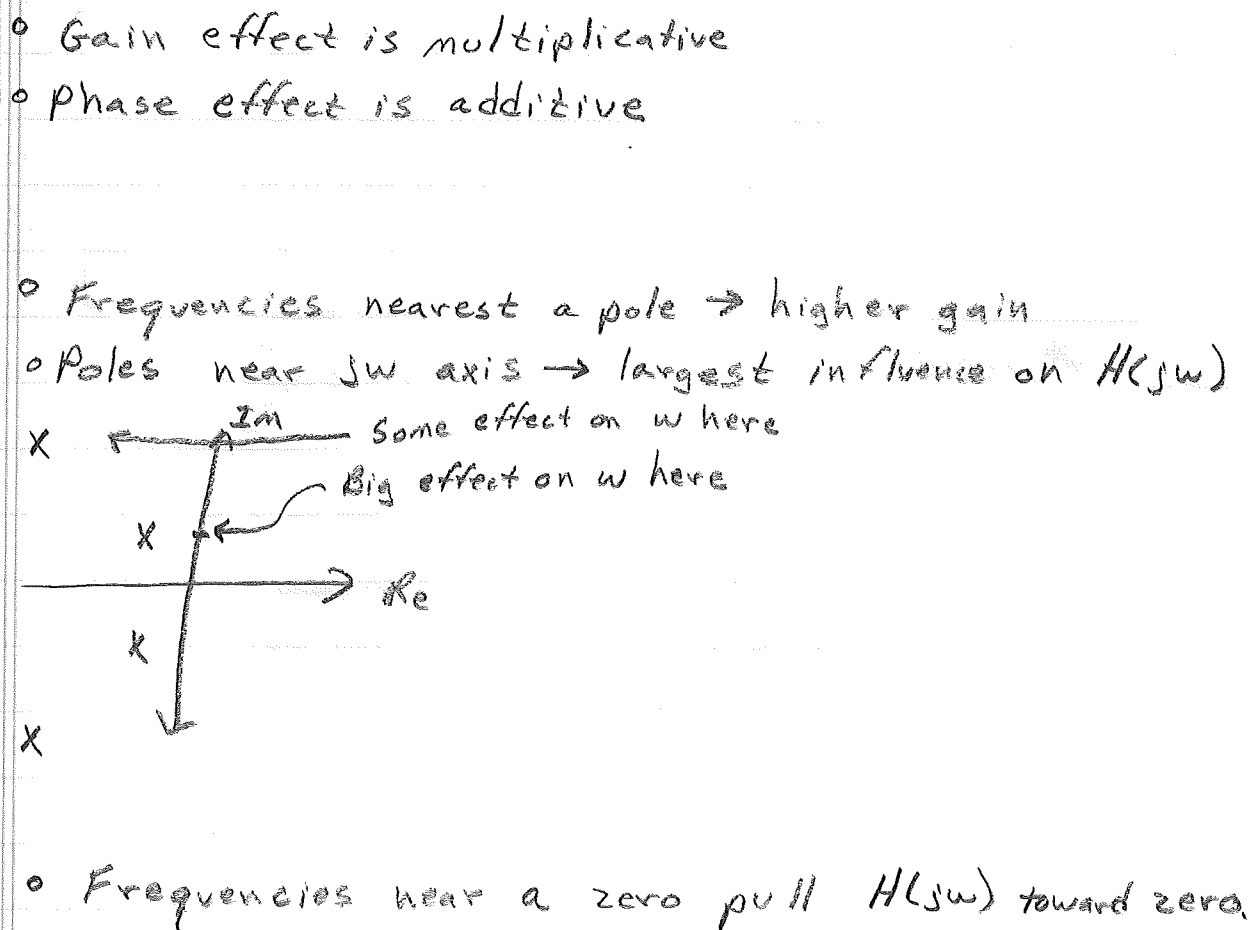 o Gain effect is multiplicative
o Phase effect is additive
o Frequencies nearest a pole → higher gain
o Poles near jw axis → largest influence on H(jw)
Im
X ← Some effect on w here
Big effect on w here
X
Re
X
X
o Frequencies near a zero pull H(jw) toward zero.